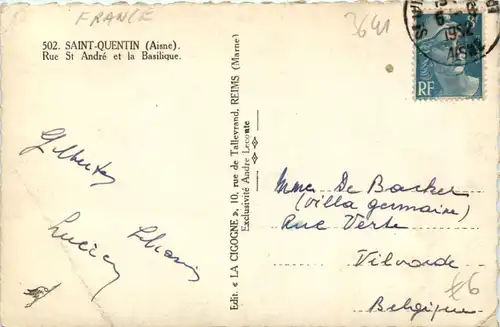 FRANCE
3641
502. SAINT-QUENTIN (Aisne).
Rue St André et la Basilique.
1952
AISNE
RF
Edit. « LA CIGOGNE », 10, rue de Talleyrand, REIMS (Marne)
Exclusivité Andre Leconte
Gilberte
Lucien
Mme De Backer
(Villa germaine)
Rue Verte
Vilvorde
Belgique